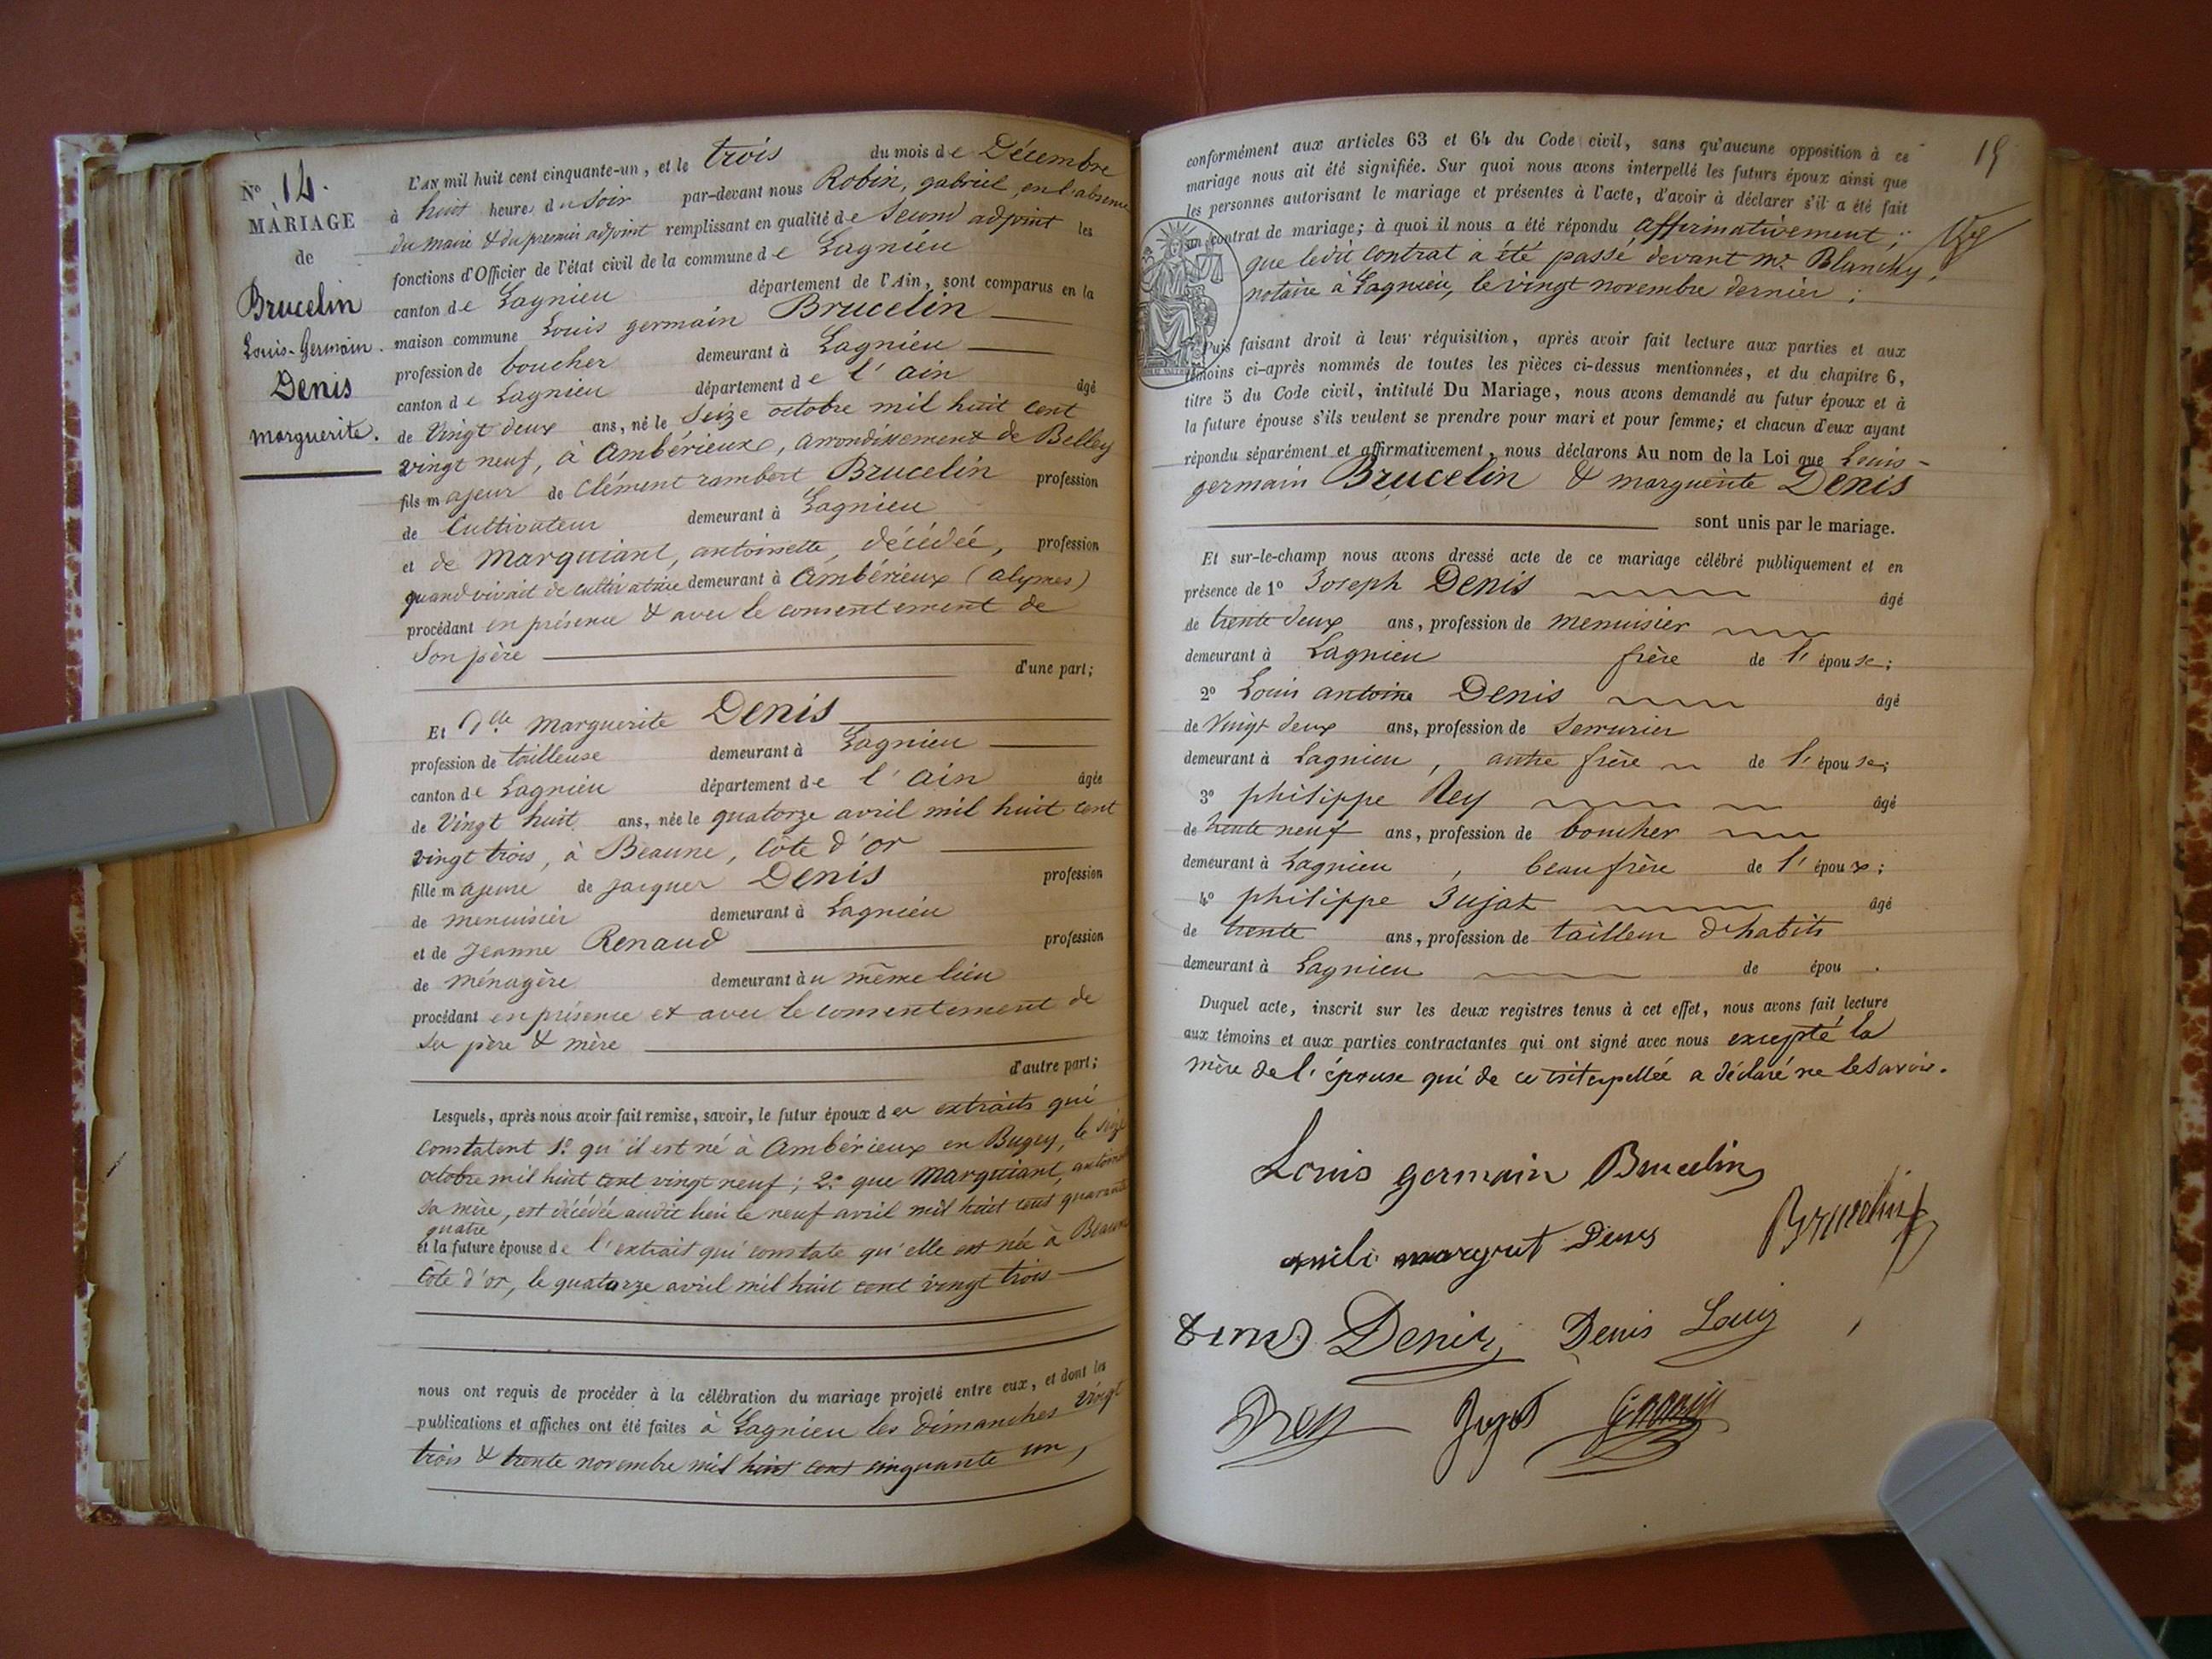 N.º 14.
MARIAGE
de
Brucelin
Louis-Germain.
Denis
marguerite.
L'AN mil huit cent cinquante-un, et le trois du mois de Décembre
à huit heure du soir par-devant nous Robin, gabriel, en l'absence
du maire & du premier adjoint remplissant en qualité de second adjoint les
fonctions d'Officier de l'état civil de la commune de Lagnieu
canton de Lagnieu département de l'Ain, sont comparus en la
maison commune Louis germain Brucelin
profession de boucher demeurant à Lagnieu
canton de Lagnieu département de l'ain âgé
de vingt deux ans, né le seize octobre mil huit cent
vingt neuf, à Ambérieux, arrondissement de Belley
fils majeur de Clément rambert Brucelin profession
de Cultivateur demeurant à Lagnieu
et de Marguiant, antoinette, décédée, profession
quand vivait de cultivatrice demeurant à Ambérieux (alymes)
procédant en présence & avec le consentement de
son père
d'une part;
Et Dlle marguerite Denis
profession de tailleuse demeurant à Lagnieu
canton de Lagnieu département de l'ain âgée
de vingt huit ans, née le quatorze avril mil huit cent
vingt trois, à Beaune, côte d'or
fille majeure de jacques Denis profession
de menuisier demeurant à Lagnieu
et de Jeanne Renaud profession
de ménagère demeurant au même lieu
procédant en présence et avec le consentement de
ses père & mère
d'autre part;
Lesquels, après nous avoir fait remise, savoir, le futur époux des extraits qui
constatent 1.º qu'il est né à Ambérieux en Bugey, le seize
octobre mil huit cent vingt neuf; 2.º que Marguiant, antoinette
sa mère, est décédée audit lieu le neuf avril mil huit cent quarante
quatre
et la future épouse de l'extrait qui constate qu'elle est née à Beaune
côte d'or, le quatorze avril mil huit cent vingt trois
nous ont requis de procéder à la célébration du mariage projeté entre eux, et dont les
publications et affiches ont été faites à Lagnieu les dimanches vingt
trois & trente novembre mil huit cent cinquante un,
15
conformément aux articles 63 et 64 du Code civil, sans qu'aucune opposition à ce
mariage nous ait été signifiée. Sur quoi nous avons interpellé les futurs époux ainsi que
les personnes autorisant le mariage et présentes à l'acte, d'avoir à déclarer s'il a été fait
un contrat de mariage; à quoi il nous a été répondu affirmativement;
que ledit contrat a été passé devant me. Blanchy,
notaire à Lagnieu, le vingt novembre dernier;
Puis faisant droit à leur réquisition, après avoir fait lecture aux parties et aux
témoins ci-après nommés de toutes les pièces ci-dessus mentionnées, et du chapitre 6,
titre 5 du Code civil, intitulé Du Mariage, nous avons demandé au futur époux et à
la future épouse s'ils veulent se prendre pour mari et pour femme; et chacun d'eux ayant
répondu séparément et affirmativement, nous déclarons Au nom de la Loi que Louis-
germain Brucelin & marguerite Denis
sont unis par le mariage.
Et sur-le-champ nous avons dressé acte de ce mariage célébré publiquement et en
présence de 1º Joseph Denis âgé
de trente deux ans, profession de menuisier
demeurant à Lagnieu frère de l'épouse;
2º Louis antoine Denis âgé
de vingt deux ans, profession de serrurier
demeurant à Lagnieu, autre frère de l'épouse;
3º philippe Rey âgé
de trente neuf ans, profession de boucher
demeurant à Lagnieu, beau frère de l'époux;
4º philippe Jujat âgé
de trente ans, profession de tailleur d'habits
demeurant à Lagnieu de épou .
Duquel acte, inscrit sur les deux registres tenus à cet effet, nous avons fait lecture
aux témoins et aux parties contractantes qui ont signé avec nous excepté la
mère de l'épouse qui de ce interpellée a déclaré ne le savoir.
Louis germain Brucelin
margrit Denis Brucelin
Denis Denis Louis
Rey Jujat